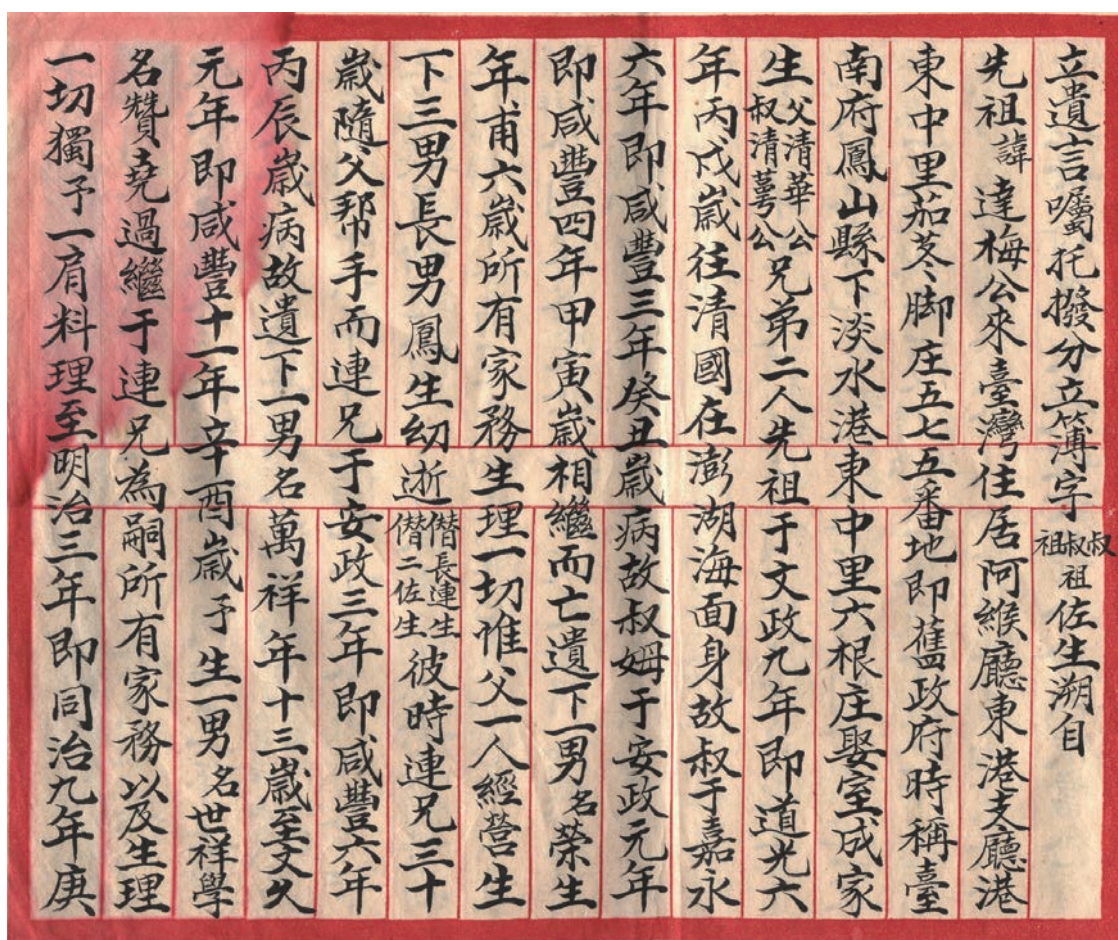 立遺言囑托撥分立簿字叔祖叔祖佐生溯自
先祖諱達梅公來臺灣住居阿緱廳東港支廳港
東中里茄苳脚庄五七五番地即舊政府時稱臺
南府鳳山縣下淡水港東中里六根庄娶室成家
生父清華公叔清萼公兄弟二人先祖于文政九年即道光六
年丙戌歲往清國在澎湖海面身故叔于嘉永
六年即咸豐三年癸丑歲病故叔姆于安政元年
即咸豐四年甲寅歲相繼而亡遺下一男名榮生
年甫六歲所有家務生理一切惟父一人經營生
下三男長男鳳生幼逝僭長連生僭二佐生彼時連兄三十
歲隨父帮手而連兄于安政三年即咸豐六年
丙辰歲病故遺下一男名萬祥年十三歲至文久
元年即咸豐十一年辛酉歲予生一男名世祥學
名贊堯過繼于連兄為嗣所有家務以及生理
一切獨予一肩料理至明治三年即同治九年庚